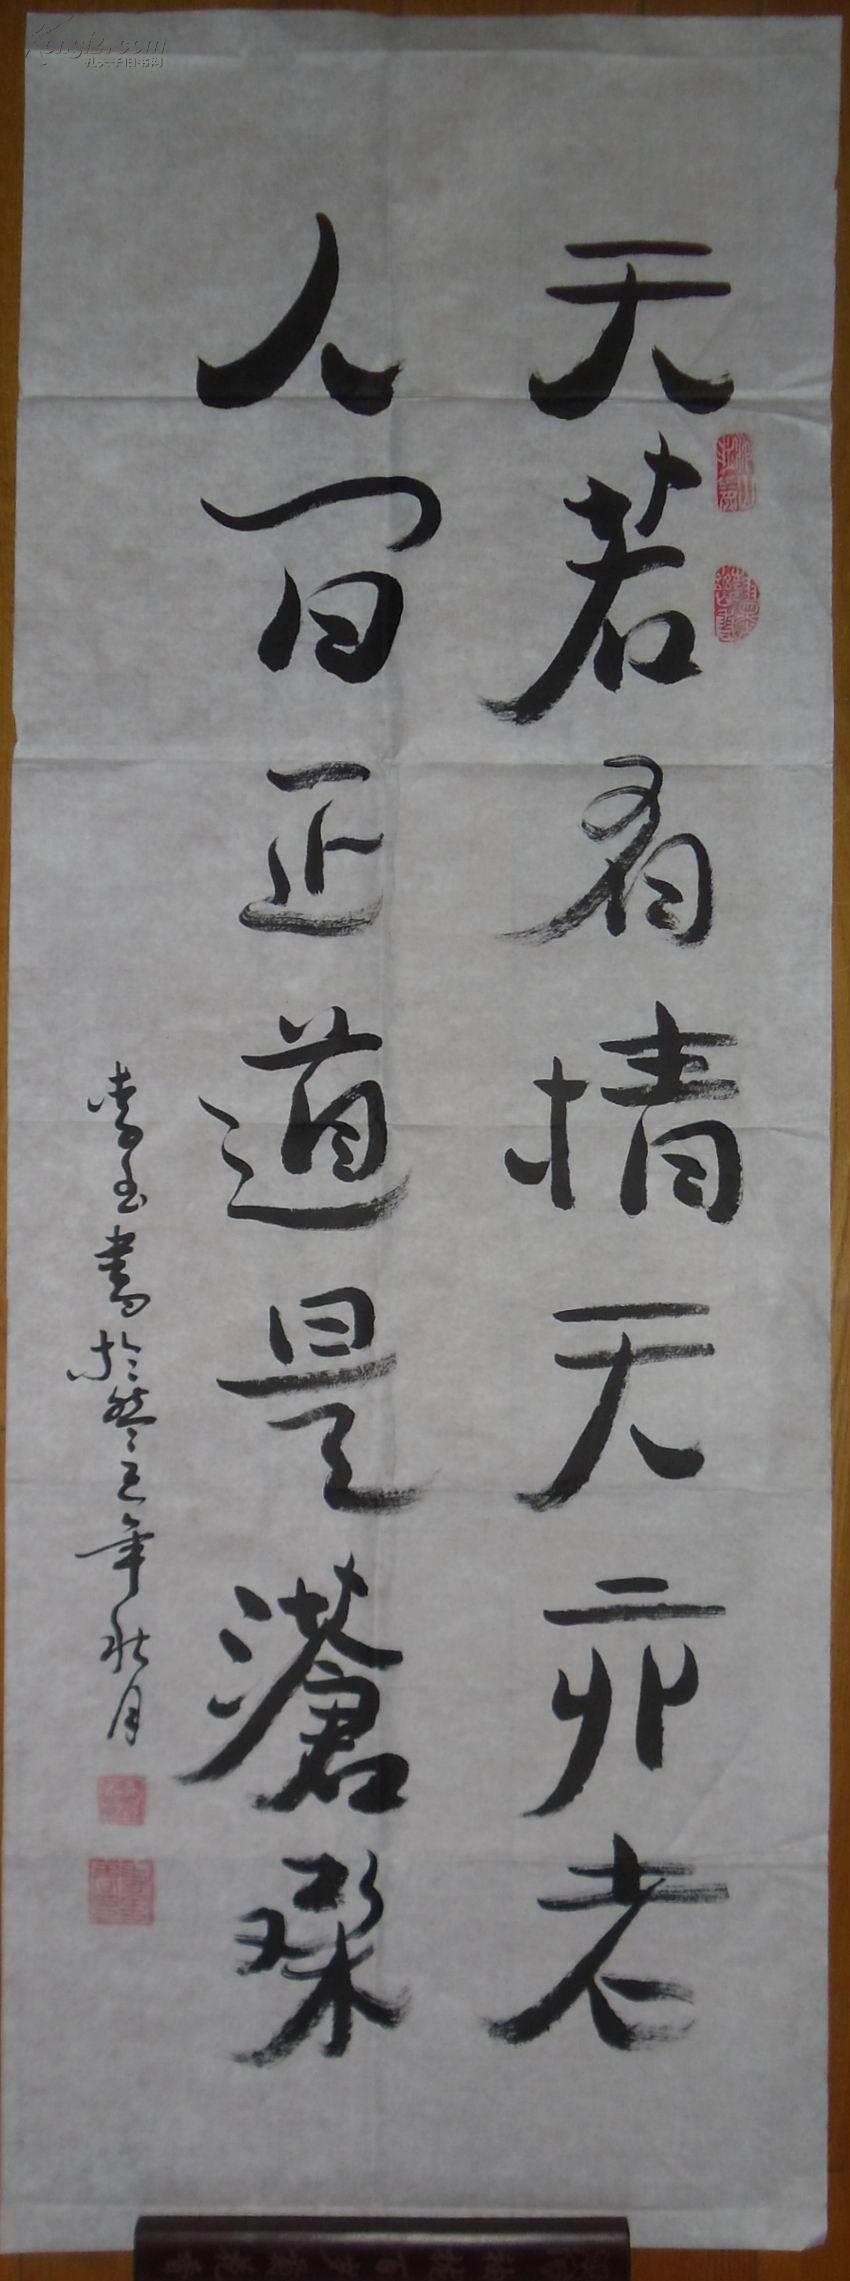 天若有情天亦老
人间正道是滄桑
書於零五年秋月
孔夫子旧书网